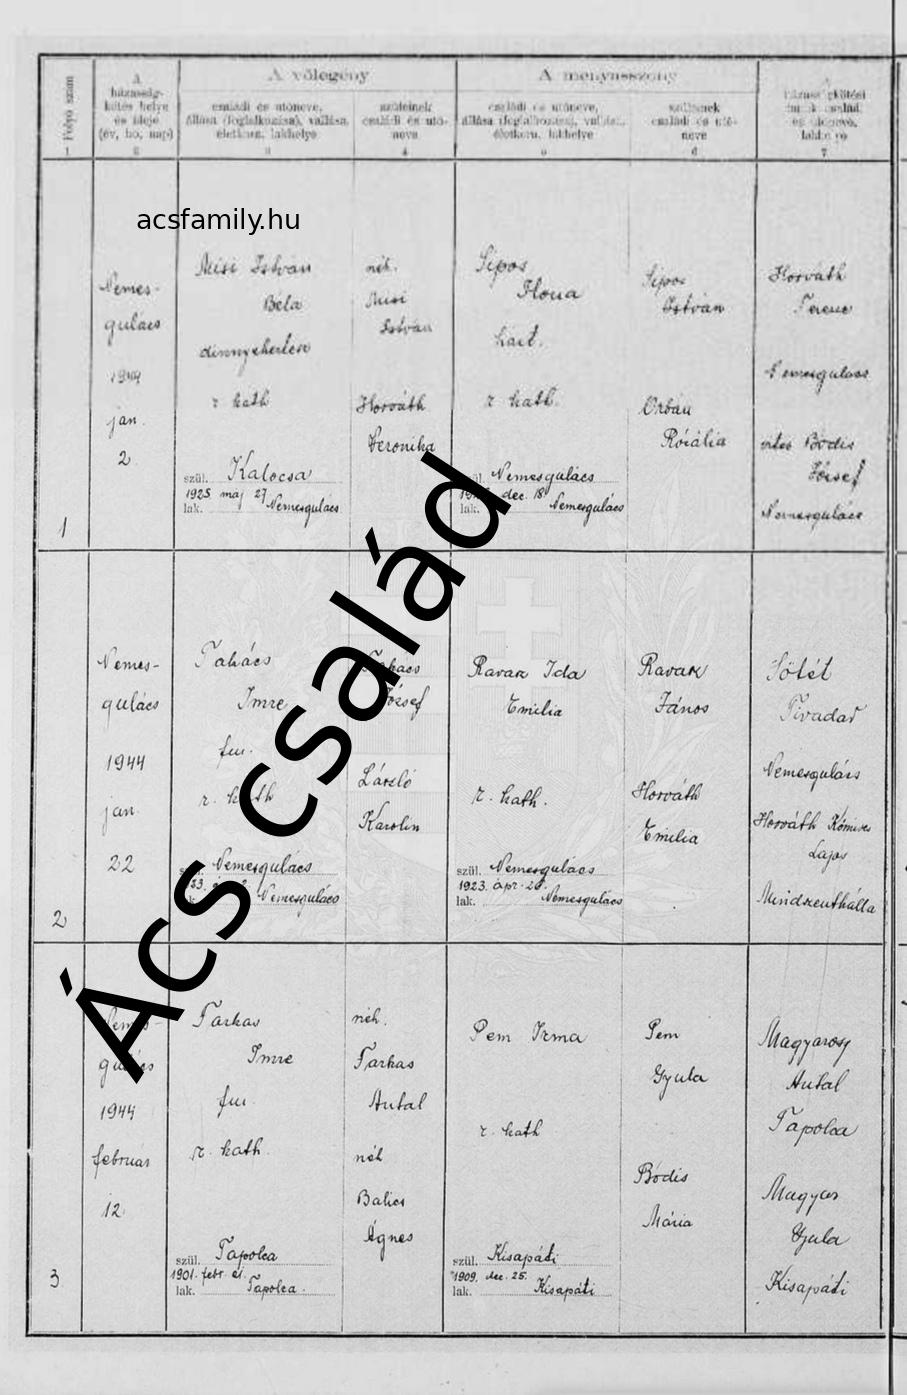 A vőlegény
A menyasszony
Folyó szám
A
házasság-
kötés helye
és ideje
(év, hó, nap)
családi és utóneve,
állása (foglalkozása), vallása,
életkora, lakhelye
szüleinek
családi és utó-
neve
családi és utóneve,
állása (foglalkozása), vallása,
életkora, lakhelye
szüleinek
családi és utó-
neve
1
2
3
4
5
6
7
acsfamily.hu
1
Nemes-
gulács
1944
jan.
2
Misi István
Béla
r. kath
szül. Kalocsa
1925 máj 27
lak. Nemesgulács
néh.
Misi
István
Horváth
Veronika
Sipos
Ilona
házt.
r. kath.
szül. Nemesgulács
dec. 18
lak. Nemesgulács
Sipos
István
Orbán
Rozália
Horváth
Ferenc
Nemesgulács
vitéz Bódis
József
Nemesgulács
2
Nemes-
gulács
1944
jan.
22
Takács
Imre
fm.
r. kath
Nemesgulács
Nemesgulács
Takács
József
László
Karolin
Ravasz Ida
Emilia
r. kath.
szül. Nemesgulács
1923. ápr. 26.
lak. Nemesgulács
Ravasz
János
Horváth
Emilia
Sötét
Tivadar
Nemesgulács
Horváth Kőmives
Lajos
Mindszentkálla
3
Nemes-
gulács
1944
február
12
Farkas
Imre
fm.
r. kath.
szül. Tapolca
1901. febr.
lak. Tapolca.
néh.
Farkas
Antal
néh
Balics
Ágnes
Pem Irma
r. kath
szül. Kisapáti
1909. dec. 25.
lak. Kisapáti
Pem
Gyula
Bódis
Mária
Magyarosy
Antal
Tapolca
Magyar
Gyula
Kisapáti
Ács család